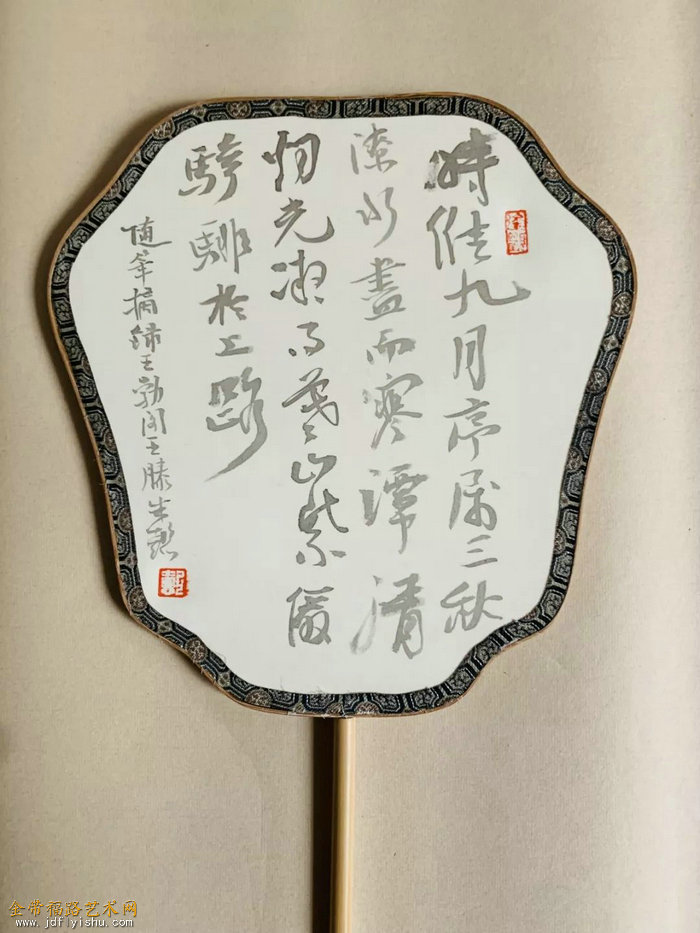 時維九月序属三秋
潦水盡而寒潭清
烟光凝而暮山紫儼
驂騑於上路
随筆摘録王勃
金带福路艺术网
www.jdflyishu.com